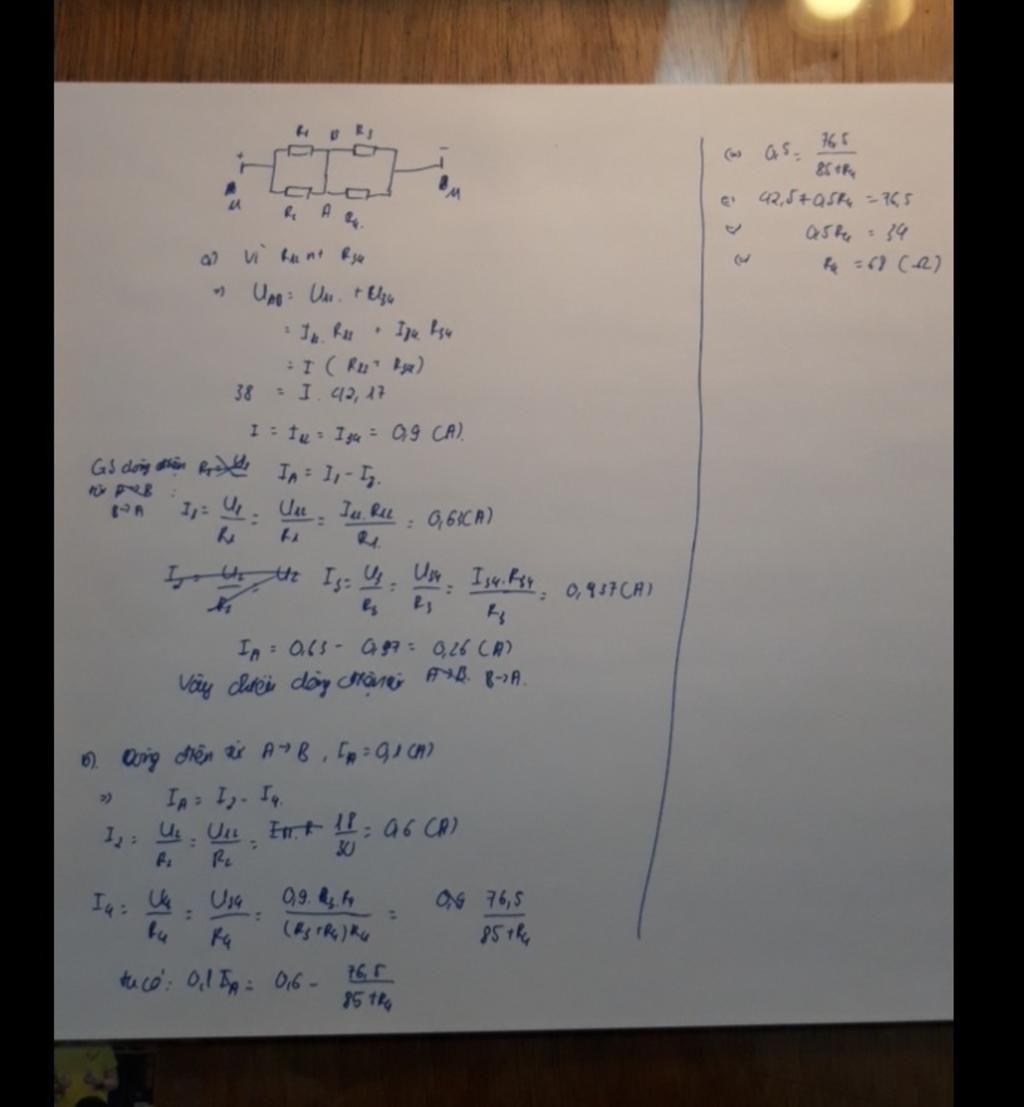 R₁ B R₃
+ −
M
R₂ A R₄
a) Vì R₁₂ nt R₃₄
=> U_AB = U₁₂ + U₃₄
= I₁₂. R₁₂ + I₃₄. R₃₄
= I ( R₁₂ + R₃₄)
38 = I. 42,17
I = I₁₂ = I₃₄ = 0,9 (A).
GS dòng điện I_A = I₁ - I₃.
từ B->A
I₁ = U₁/R₁ = U₁₂/R₁ = I₁₂.R₁₂/R₁ = 0,63(A)
I₃ = U₃/R₃ = U₃₄/R₃ = I₃₄.R₃₄/R₃ = (A)
I_A = 0,63 - = 0,26 (A)
Vậy chiều dòng điện từ B->A.
b). Dòng điện từ A->B, I_A = 0,1(A)
=> I_A = I₂ - I₄.
I₂ = U₂/R₂ = U₁₂/R₂ = 18/30 = 0,6 (A)
I₄ = U₄/R₄ = U₃₄/R₄ = 0,9.R₃.R₄/(R₃+R₄)R₄ = 76,5/85+R₄
ta có: 0,1 I_A = 0,6 - 76,5/85+R₄
<=> 0,5 = 76,5/85+R₄
<=> 42,5+0,5R₄ = 76,5
<=> 0,5R₄ = 34
<=> R₄ = 68 (Ω)